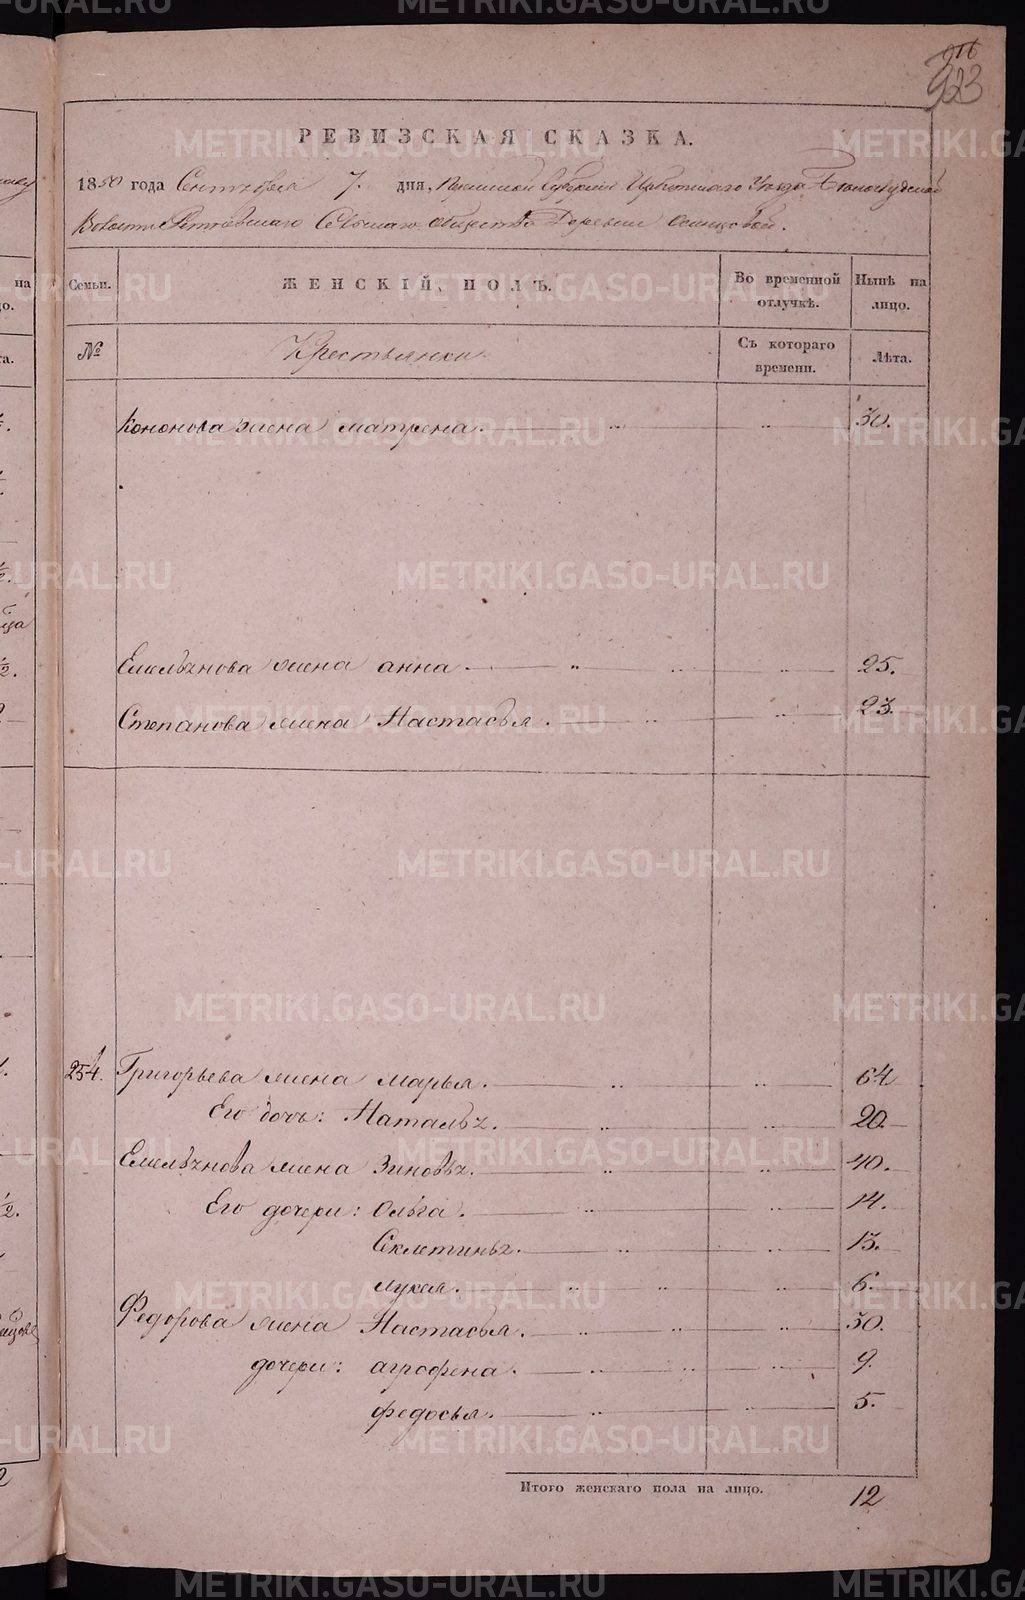 923
РЕВИЗСКАЯ СКАЗКА.
1850 года Сентября 7. дня, Пермской Губернии Ирбитскаго Уезда
Волости Сельскаго общества Деревни
Семьи. ЖЕНСКІЙ, ПОЛЪ. Во временной отлучкѣ. Нынѣ на лицо.
№ Крестьянки Съ котораго времени. Лѣта.
Кононова жена матрена. 30.
Емельянова жена анна. 25.
Степанова жена Настасья. 23.
254. Григорьева жена марья. 64
Его дочь: Наталья. 20.
Емельянова жена Зиновья. 40.
Его дочери: Ольга. 14.
Секлетинья. 13.
лукея. 6.
Федорова жена Настасья. 30.
дочери: агрофена. 9.
федосья. 5.
Итого женскаго пола на лицо. 12
METRIKI.GASO-URAL.RU